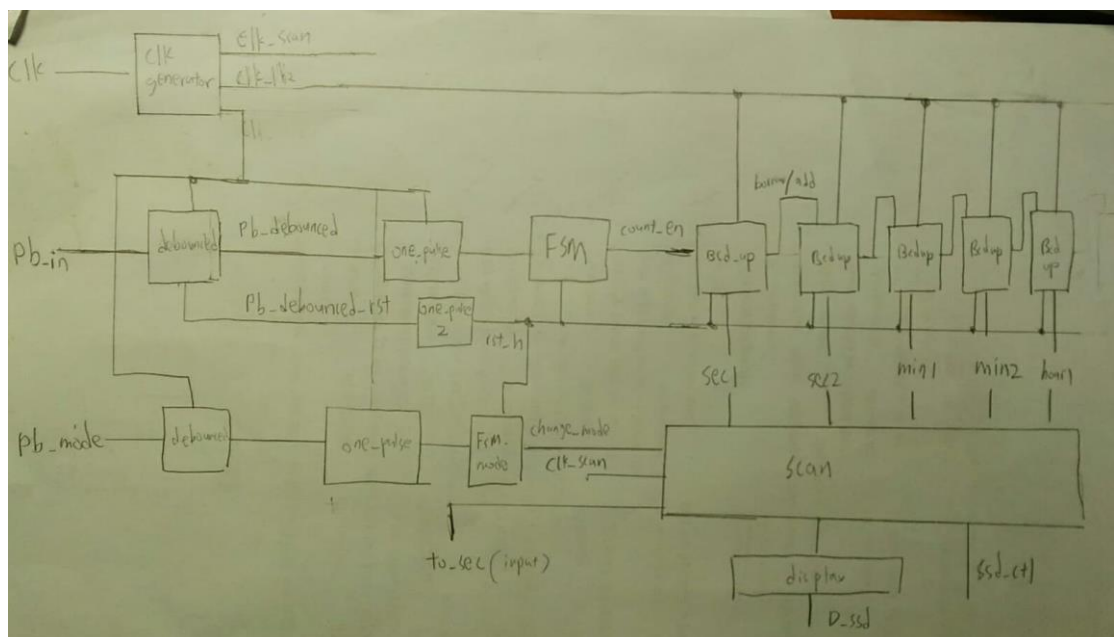 clk_scan
clk
clk
generator
clk_1hz
pb_in
debounced
pb_debounced
one_pulse
FSM
count_en
Bcd_up
borrow/add
Bcdup
Bcdup
Bcdup
Bcd
up
pb_debounced_rst
one_pulse
2
rst_n
sec1
sec2
min1
min2
hour1
pb_mode
debounced
one_pulse
FSM.
mode
change_mode
clk_scan
scan
to_sec (input)
display
ssd_ctl
D_ssd